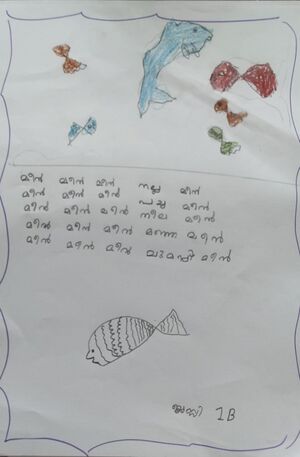 മീൻ മീൻ മീൻ നല്ല മീൻ
മീൻ മീൻ മീൻ പച്ച മീൻ
മീൻ മീൻ മീൻ നീല മീൻ
മീൻ മീൻ മീൻ മഞ്ഞ മീൻ
മീൻ മീൻ മീൻ ചുമപ്പ് മീൻ
1B